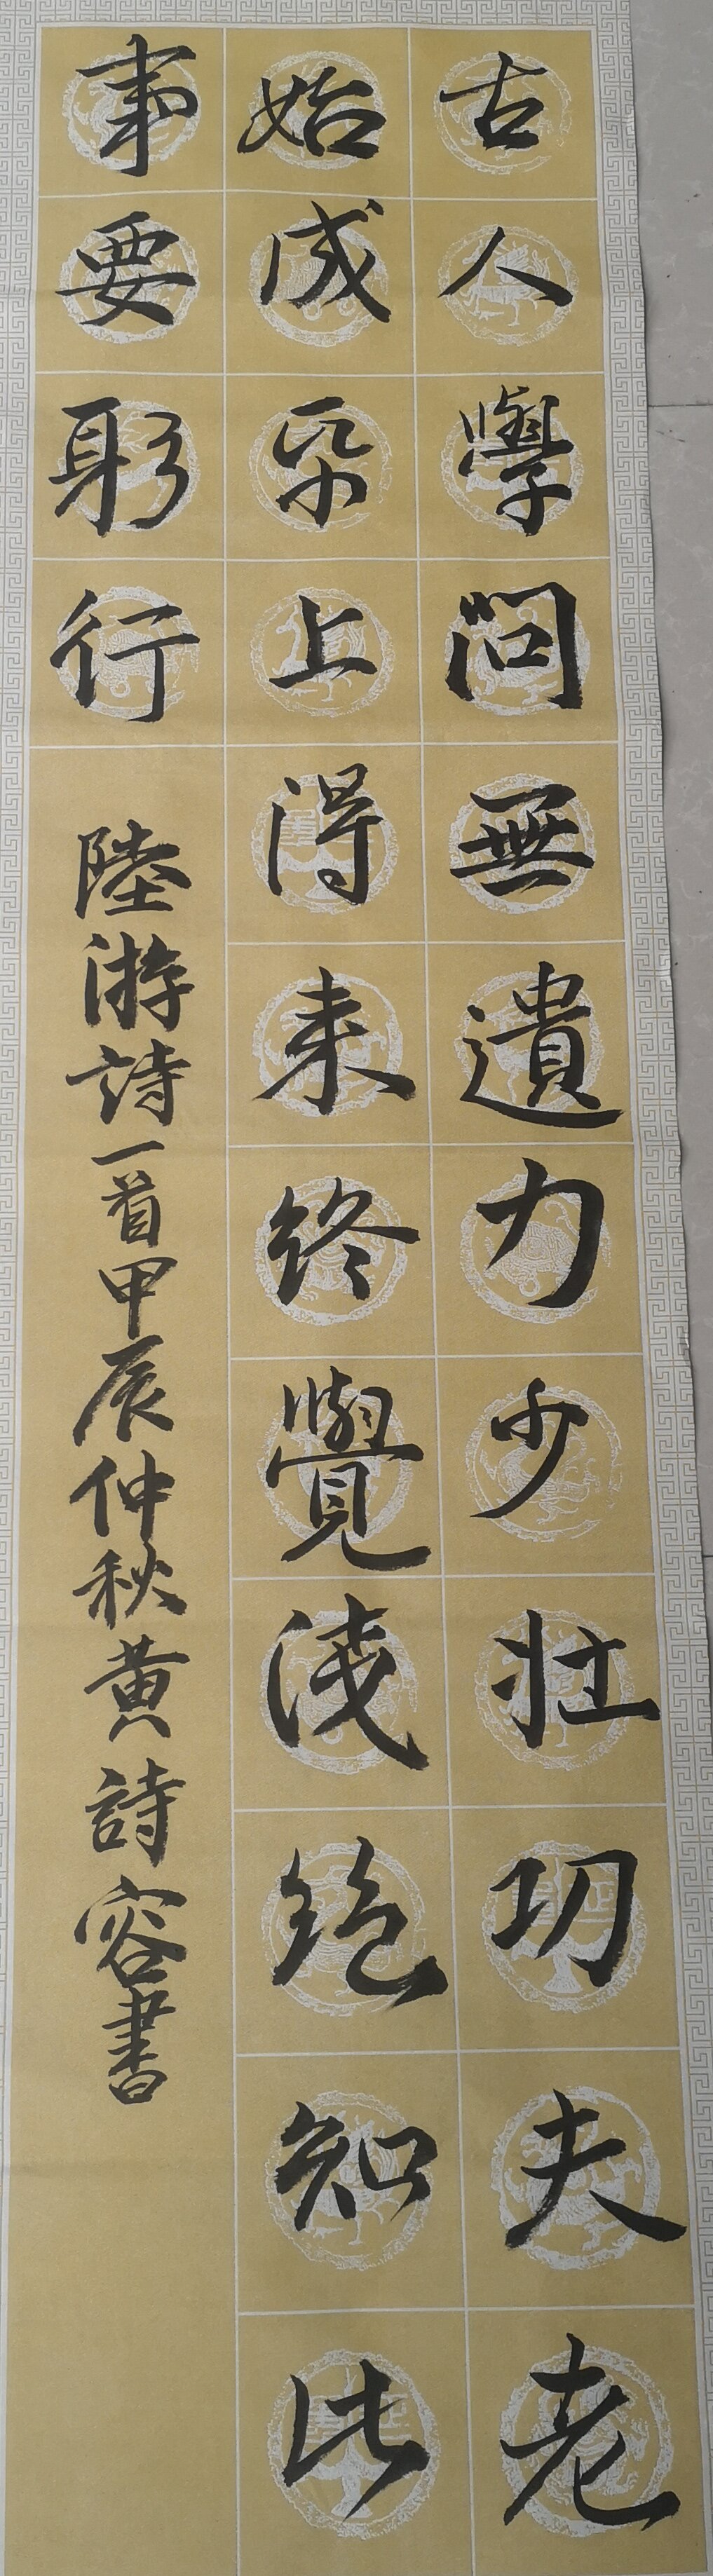 古人學問無遺力少壯功夫老
始成帋上得来终覺淺絶知此
事要躬行
陸游詩一首甲辰仲秋黄詩容書